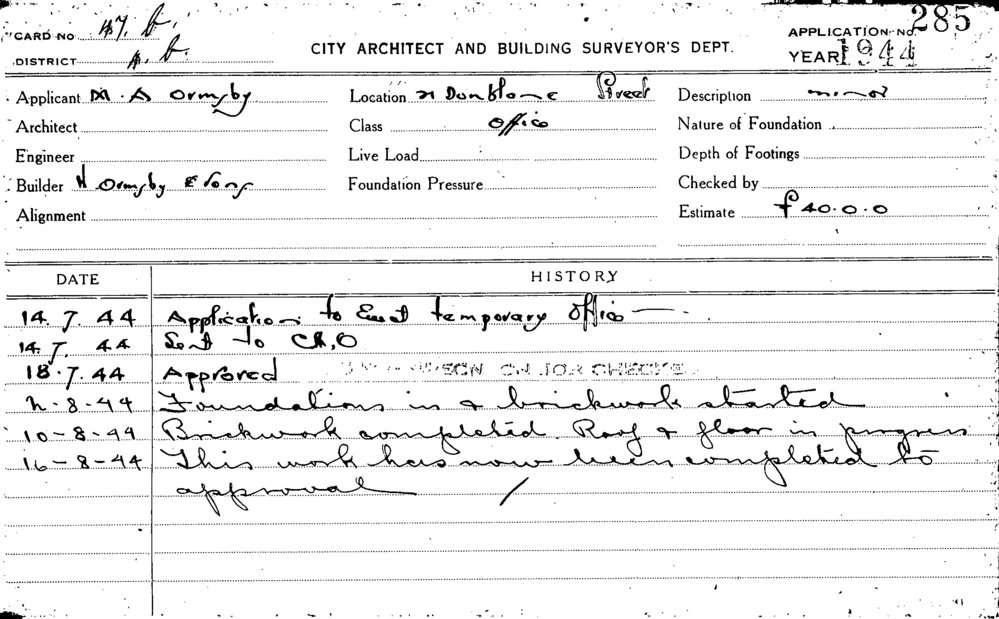 CARD NO 47. b. APPLICATION NO. 285
DISTRICT b. CITY ARCHITECT AND BUILDING SURVEYOR'S DEPT. YEAR 1944
Applicant M. A Ormsby Location Dunblane Street Description minor
Architect Class Office Nature of Foundation
Engineer Live Load Depth of Footings
Builder H Ormsby & Sons Foundation Pressure Checked by
Alignment Estimate £40.0.0
DATE HISTORY
14. 7. 44 Application to Erect temporary office
14. 7. 44 Sent to
18. 7. 44 Approved ON JOB CHECKS
8-44 Foundations in & brickwork started
10-8-44 Brickwork completed. Roof & floor in progress
16-8-44 This work has now been completed to
approval